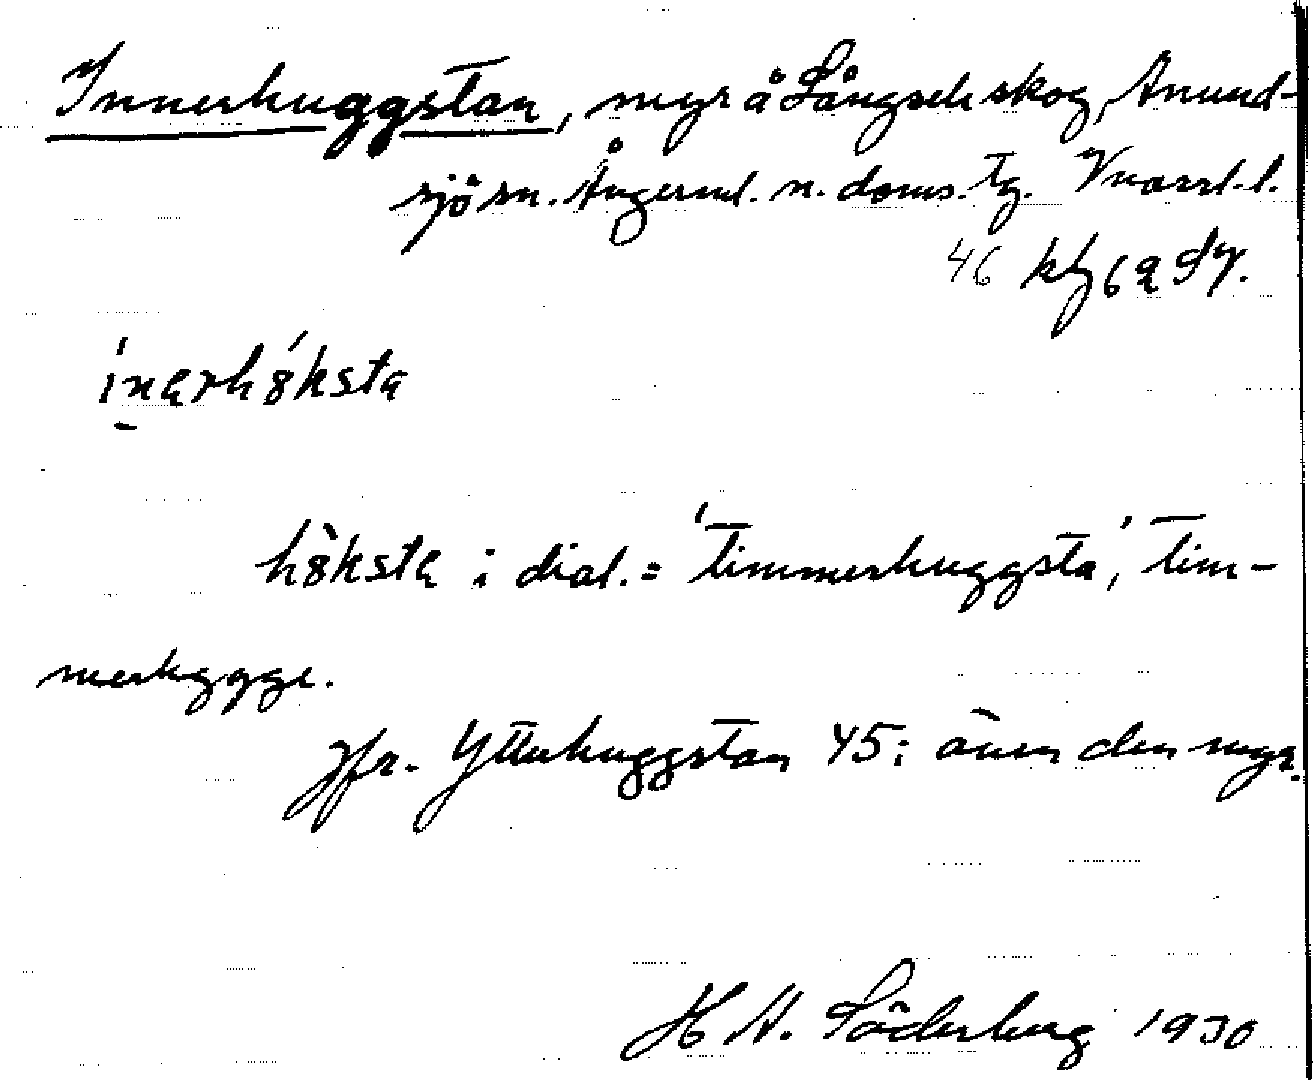 Innerhuggstan, myr å Långsele skog, Anund-
sjö sn. Ångerml. n. doms. tg. V norrl. l.
46 kbl 62 SV.
ínarhö́ksta
höksta i dial. = 'timmerhuggsta', tim-
merhygge.
Jfr. Ytterhuggstan 45; även den myr.
H A. Söderberg 1930